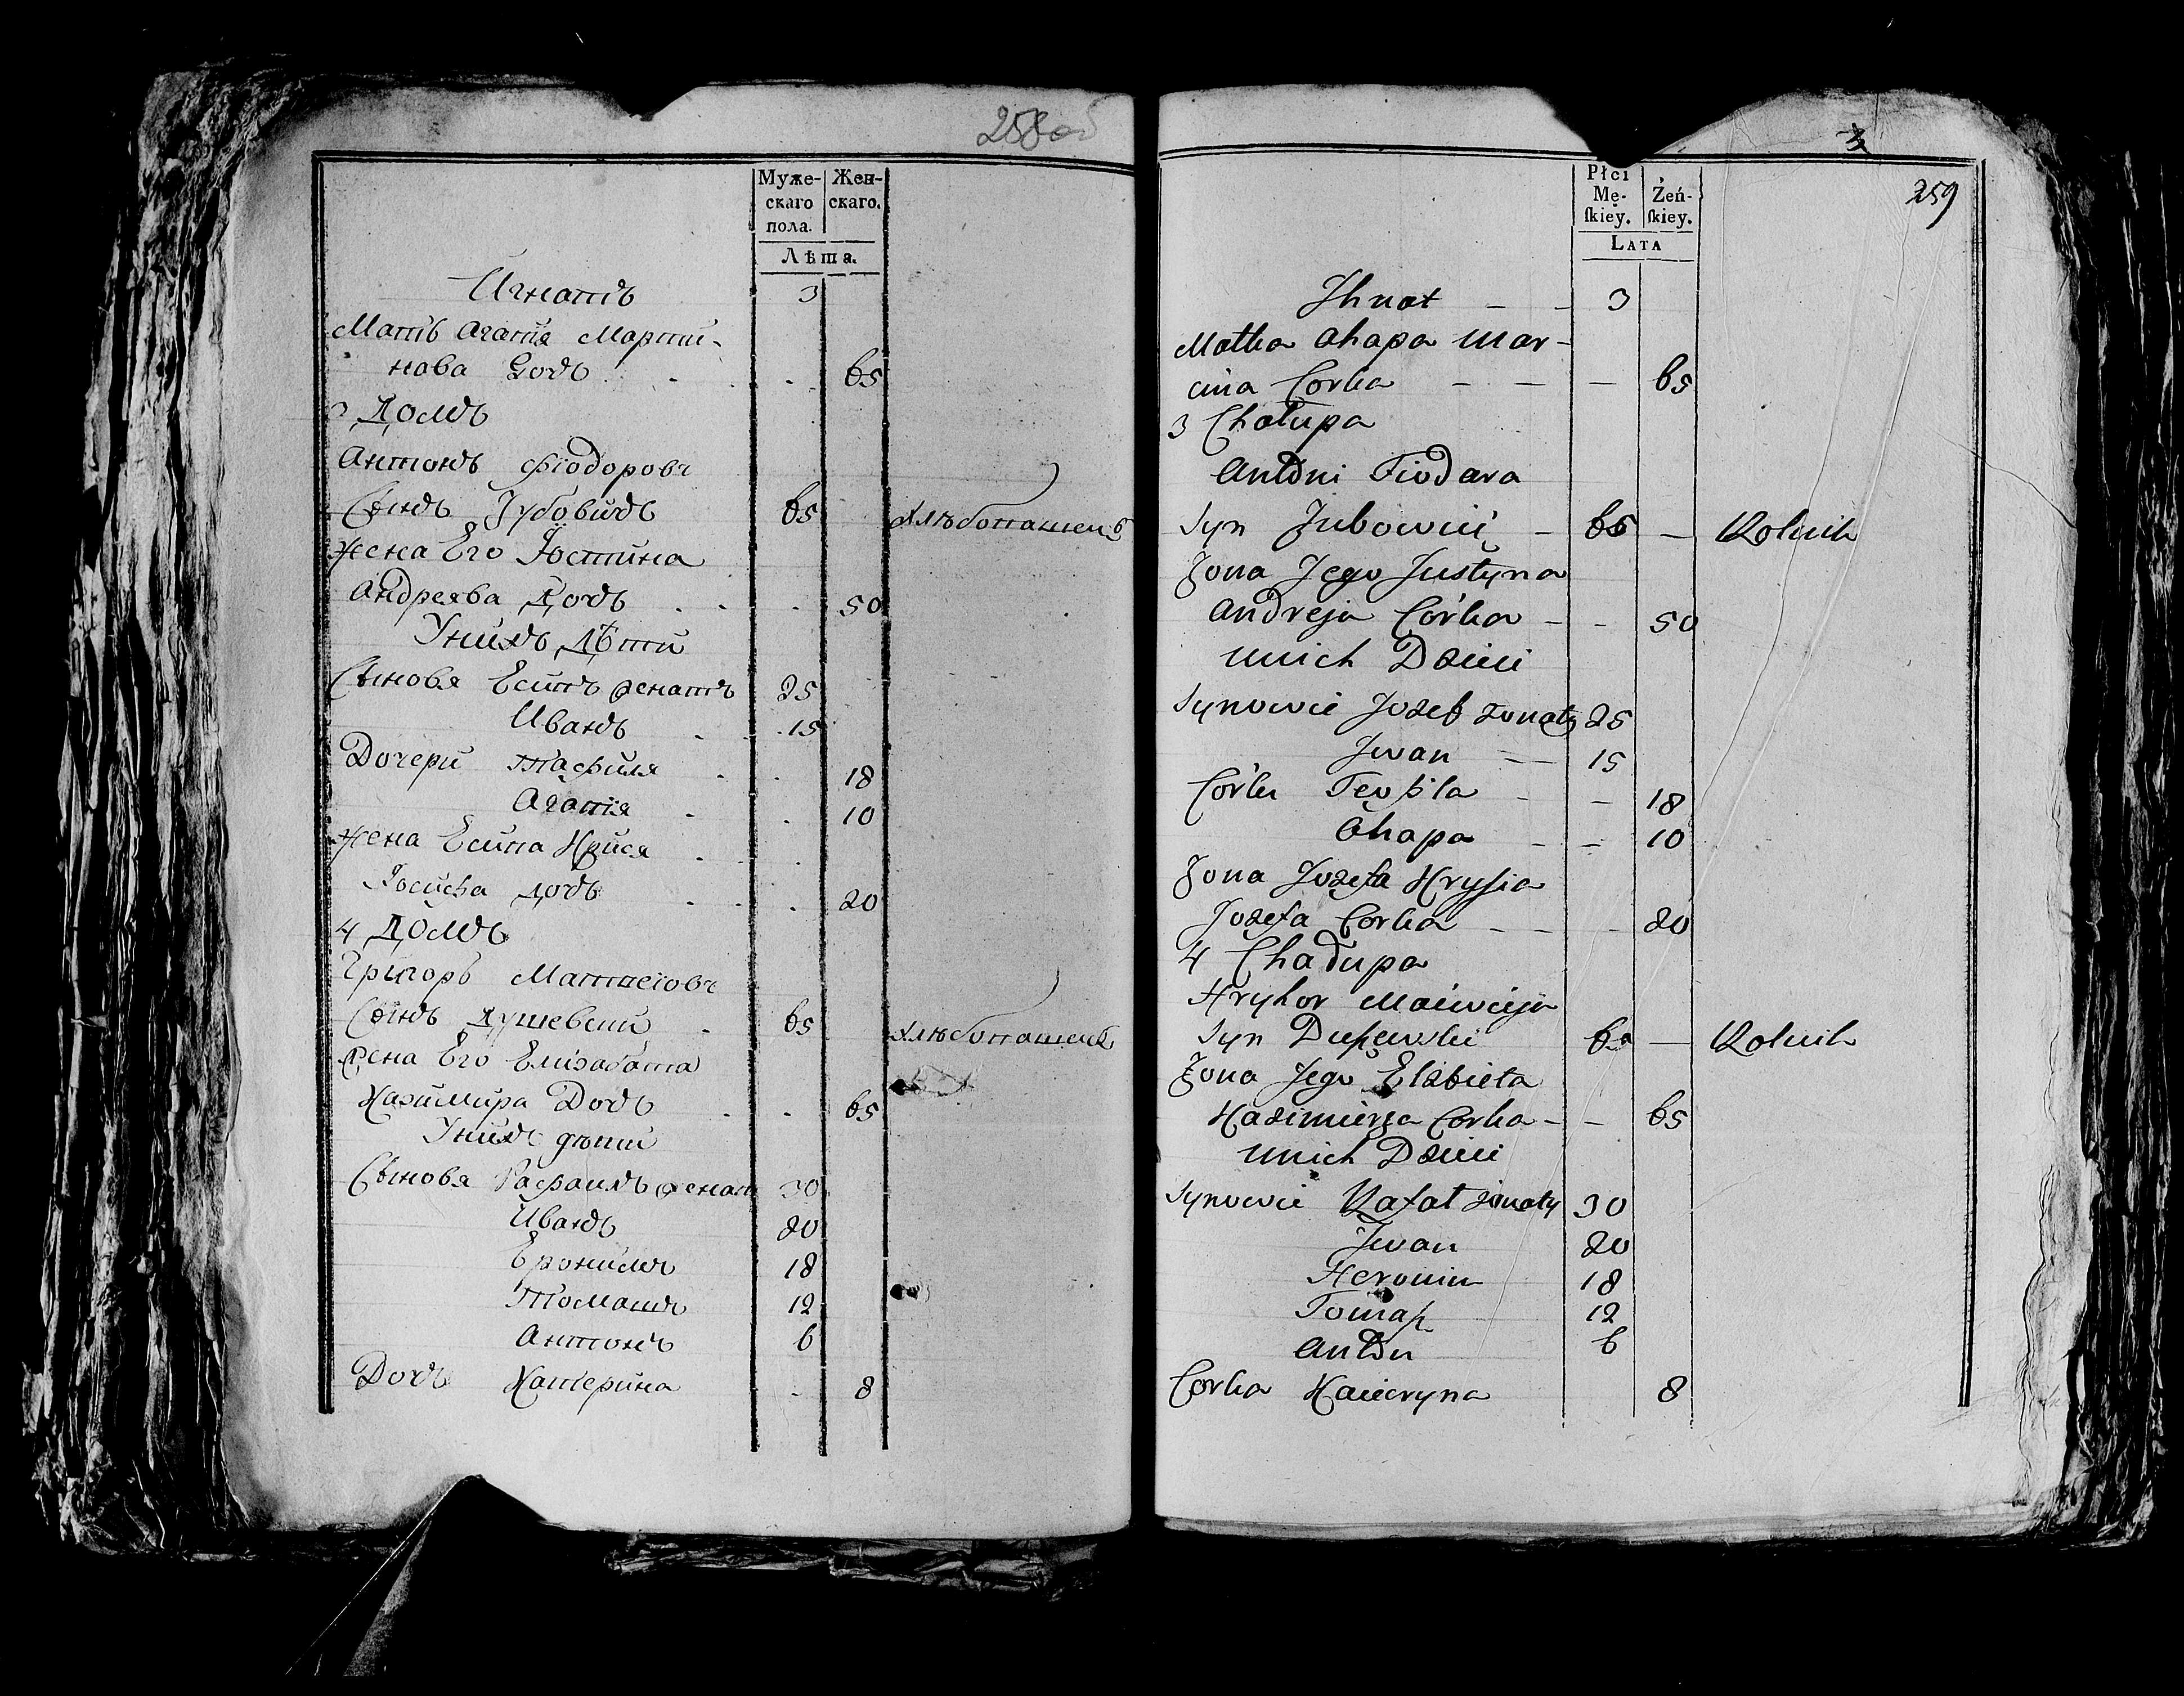 258 об
Муже-
скаго
пола.
Жен-
скаго.
Лѣта.
Игнатъ 3
Мать Агапія Марти-
нова Дочь 65
3 Домъ
Антонъ Фіодоровъ
Сынъ Зубовичъ 65 Хлѣбопашецъ
жена Его Юстина
Андреява Дочь 50
У нихъ Дѣти
Сыновя Есипъ женатъ 25
Иванъ 15
Дочери Тафиля 18
Агапія 10
жена Есипа Крися
Іосифа дочь 20
4 Домъ
Григоръ Маттвеіовъ
Сынъ Душевский 65 Хлѣбопашецъ
жена Его Елизабета
Казимира Дочь 65
У нихъ дѣти
Сыновя Рафаилъ женат 30
Иванъ 20
Еронимъ 18
Томашъ 12
Антонъ 6
Дочь Катерина 8
3
259
Płci
Mę-
ſkiey.
Żeń-
ſkiey.
LATA
Jhnat 3
Matka Ahapa Mar-
cina Corka 65
3 Chałupa
Antoni Fiodara
Syn Zubowicz 65 Rolnik
Zona Jego Justyna
Andreja Córka 50
unich Dzieci
Synowie Jozef zonaty 25
Jwan 15
Córki Teofila 18
Ahapa 10
Zona Jozefa Krysia
Jozefa Corka 20
4 Chałupa
Hryhor Maciwieja
Syn Duszewski Rolnik
Zona Jego Elzbieta
Kazimierza Corka 65
unich Dzieci
Synowie Rafał zonaty 30
Jwan 20
Heronim 18
Tomasz 12
Anton 6
Corka Kacieryna 8